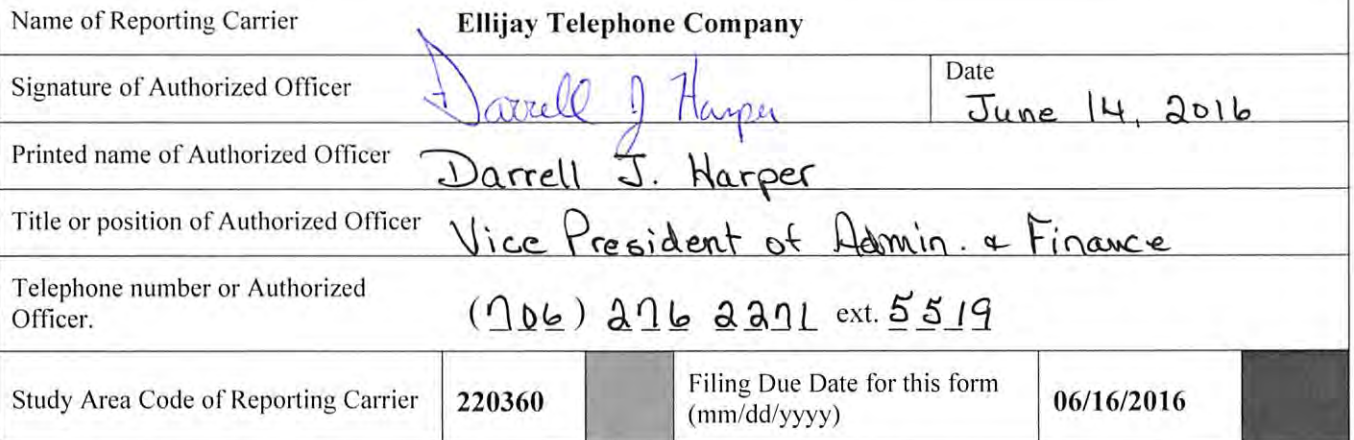 Name of Reporting Carrier Ellijay Telephone Company
Signature of Authorized Officer Darrell J Harper Date June 14, 2016
Printed name of Authorized Officer Darrell J. Harper
Title or position of Authorized Officer Vice President of Admin. & Finance
Telephone number or Authorized Officer. (706) 276 2271 ext. 5519
Study Area Code of Reporting Carrier 220360 Filing Due Date for this form (mm/dd/yyyy) 06/16/2016